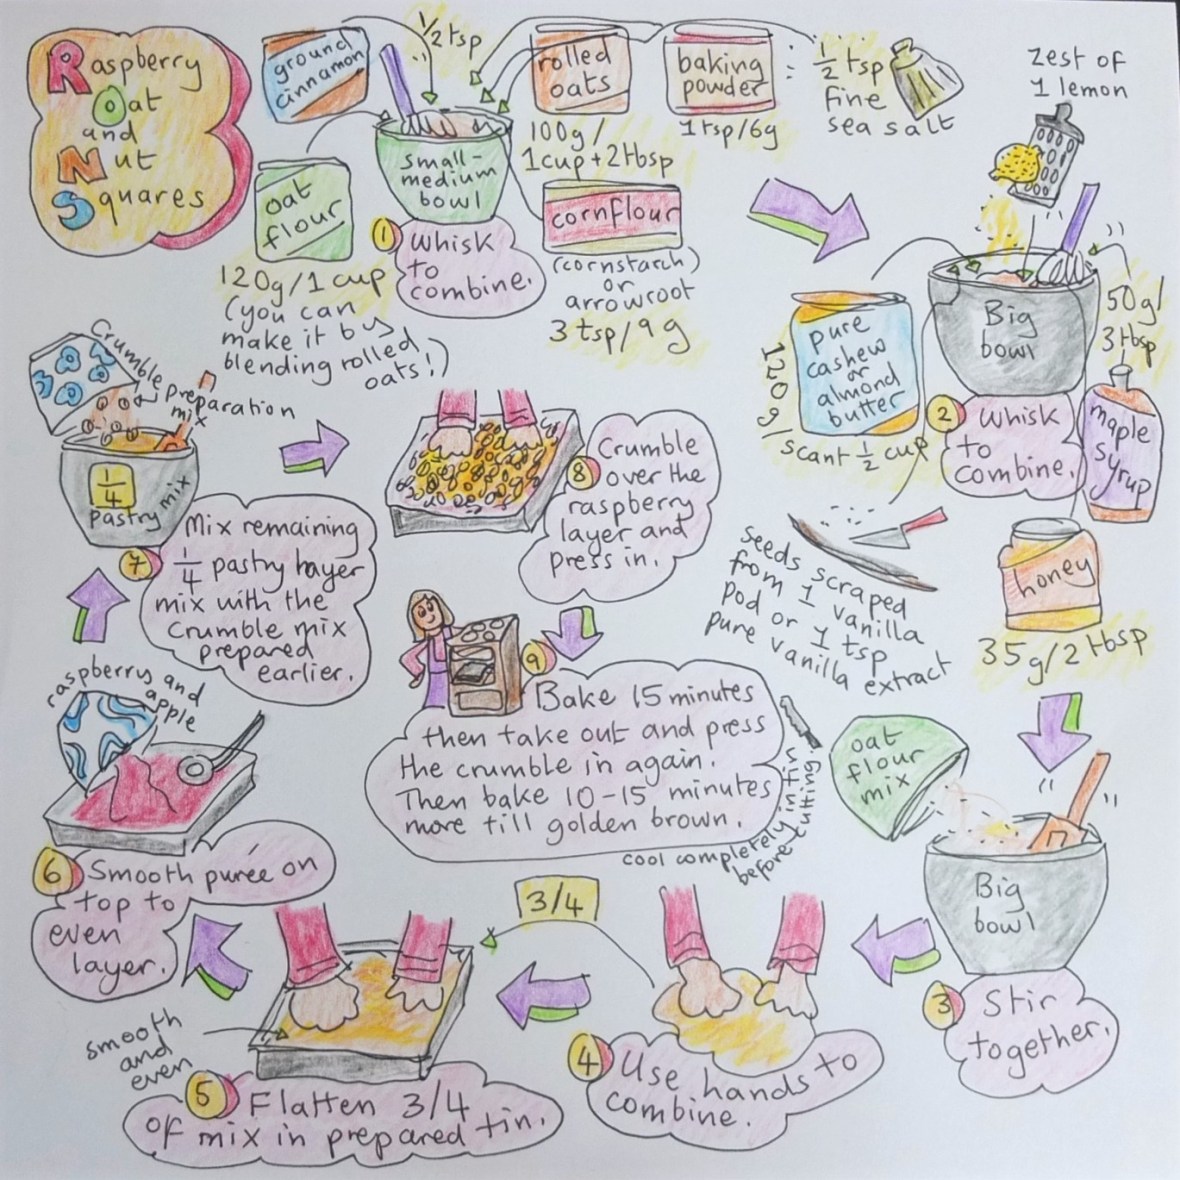 Raspberry
Oat
and
Nut
Squares
ground
cinnamon
1/2 tsp
rolled
oats
100g/
1cup+2tbsp
baking
powder
1tsp/6g
1/2 tsp
fine
sea salt
zest of
1 lemon
small-
medium
bowl
oat
flour
120g/1 cup
(you can
make it by
blending rolled
oats!)
cornflour
(cornstarch)
or
arrowroot
3 tsp/9g
1 Whisk
to
combine.
pure
cashew
or
almond
butter
120g/
scant 1/2 cup
Big
bowl
50g/
3tbsp
maple
syrup
2 Whisk
to
combine.
seeds scraped
from 1 vanilla
pod or 1 tsp
pure vanilla extract
honey
35g/2tbsp
oat
flour
mix
Big
bowl
3 Stir
together.
4 Use hands to
combine.
3/4
smooth
and
even
5 Flatten 3/4
of mix in prepared tin.
raspberry and
apple
6 Smooth purée on
top to
even
layer.
Crumble preparation
mix
1/4
pastry mix
7 Mix remaining
1/4 pastry layer
mix with the
crumble mix
prepared
earlier.
8 Crumble
over the
raspberry
layer and
press in.
9 Bake 15 minutes
then take out and press
the crumble in again.
Then bake 10-15 minutes
more till golden brown.
cool completely in tin
before cutting